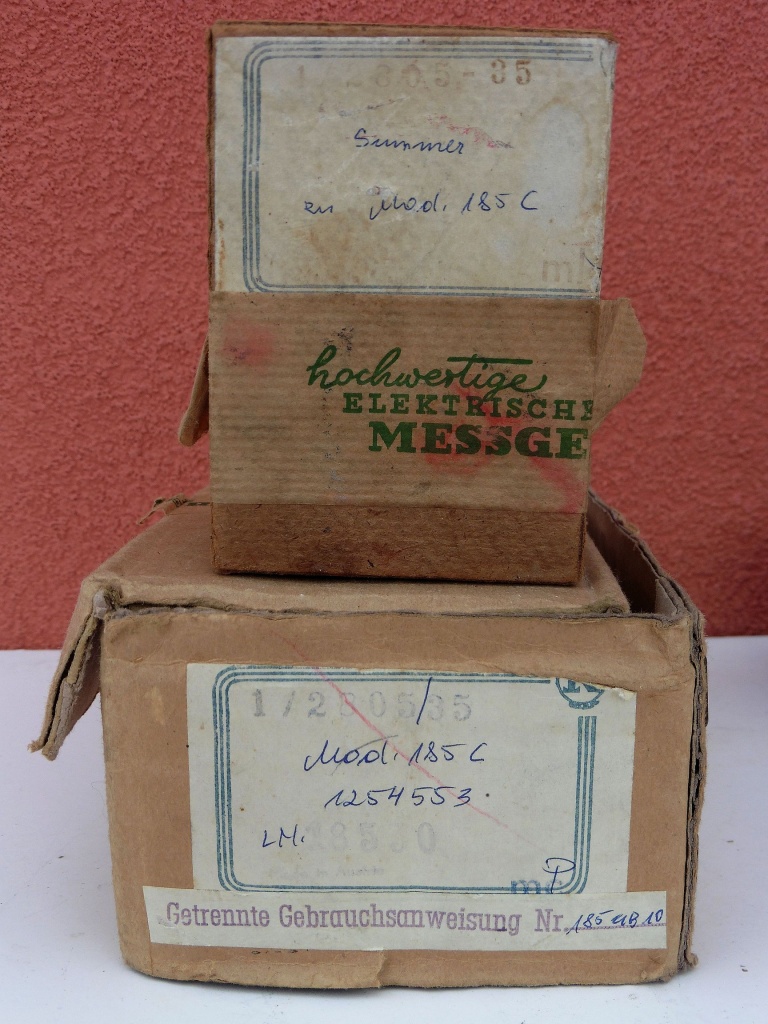 35
Summer
zu Mod. 185 C
hochwertige
ELEKTRISCHE
MESSGE
1/2305/35
Mod. 185 C
1254553.
LM.
Getrennte Gebrauchsanweisung Nr.